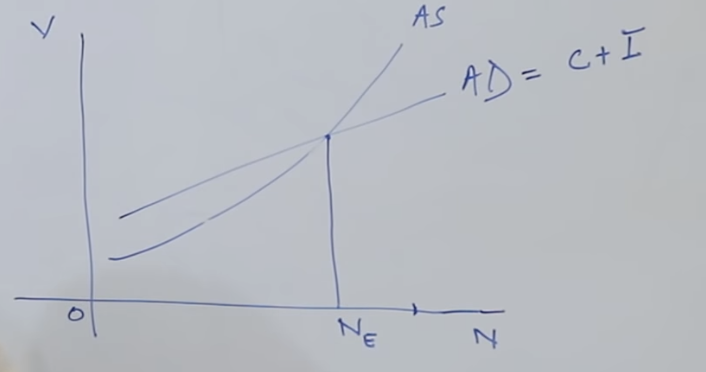 V
AS
AD = C + I
O
N_E
N